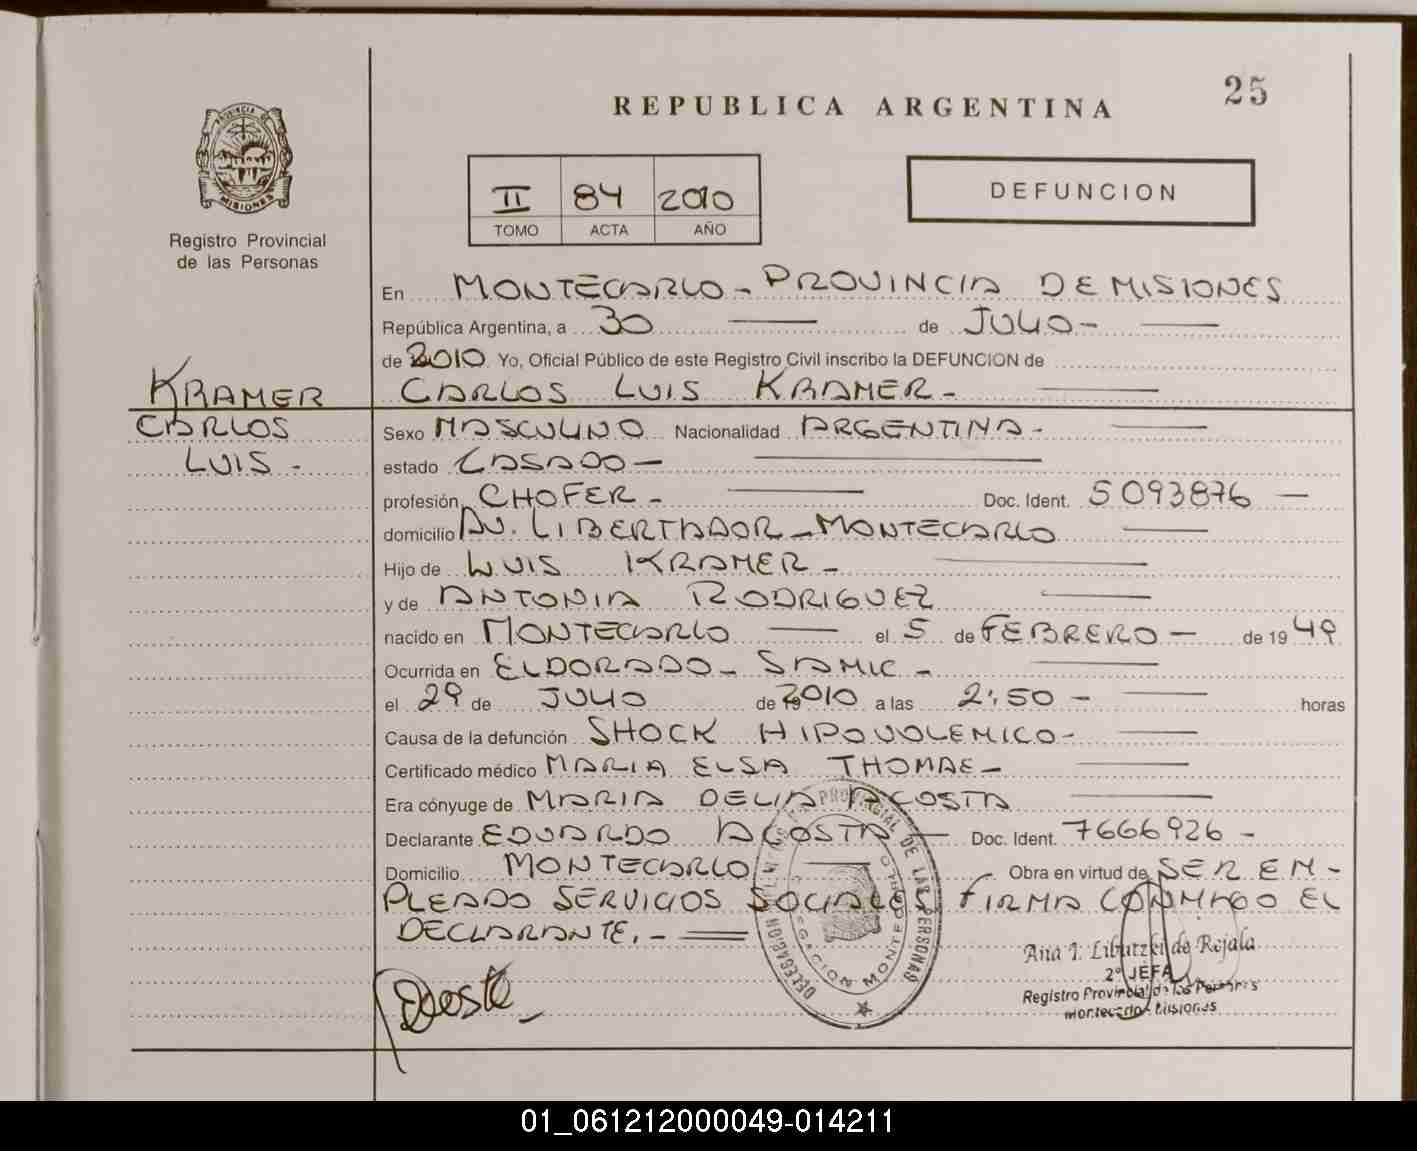 25
REPUBLICA ARGENTINA
PROVINCIA DE
MISIONES
Registro Provincial
de las Personas
II 84 2010
TOMO ACTA AÑO
DEFUNCION
En MONTECARLO - PROVINCIA DE MISIONES
República Argentina, a 30 de JULIO -
de 2010 Yo, Oficial Público de este Registro Civil inscribo la DEFUNCION de
KRAMER
CARLOS
LUIS -
CARLOS LUIS KRAMER -
Sexo MASCULINO Nacionalidad ARGENTINA -
estado CASADO -
profesión CHOFER - Doc. Ident. 5093876 -
domicilio AV. LIBERTADOR - MONTECARLO
Hijo de LUIS KRAMER -
y de ANTONIA RODRIGUEZ
nacido en MONTECARLO el 5 de FEBRERO - de 1949
Ocurrida en ELDORADO - SAMIC -
el 29 de JULIO de 2010 a las 2:50 - horas
Causa de la defunción SHOCK HIPOVOLEMICO -
Certificado médico MARIA ELSA THOMAE -
Era cónyuge de MARIA DELIA ACOSTA
Declarante EDUARDO ACOSTA - Doc. Ident. 7666926 -
Domicilio MONTECARLO Obra en virtud de SER EM-
PLEADO SERVICIOS SOCIALES FIRMA CONMIGO EL
DECLARANTE. -
PROVINCIAL DE LAS PERSONAS
DELEGACION
Acosta
Ana I. Libutzki de Rejala
2º JEFA
Registro Provincial de las Personas
Montecarlo - Misiones
01_061212000049-014211